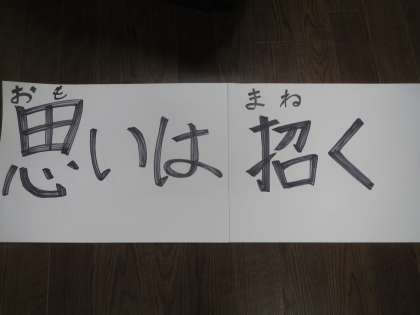 おも まね
思いは招く